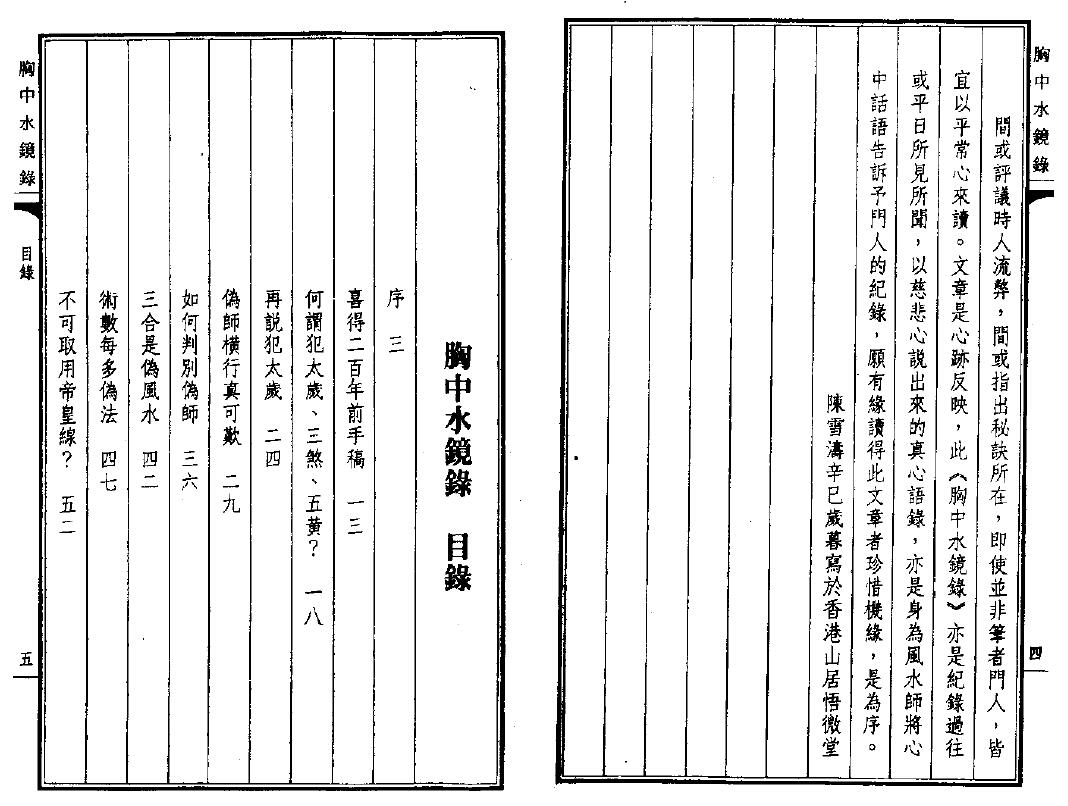 胸中水鏡錄
四
間或評議時人流弊，間或指出秘訣所在，即使並非筆者門人，皆
宜以平常心來讀。文章是心跡反映，此《胸中水鏡錄》亦是紀錄過往
或平日所見所聞，以慈悲心說出來的真心語錄，亦是身為風水師將心
中話語告訴予門人的紀錄，願有緣讀得此文章者珍惜機緣，是為序。
陳雪濤辛巳歲暮寫於香港山居悟微堂
胸中水鏡錄　目錄
序　三
喜得二百年前手稿　一三
何謂犯太歲、三煞、五黃？　一八
再說犯太歲　二四
偽師橫行真可歎　二九
如何判別偽師　三六
三合是偽風水　四二
術數每多偽法　四七
不可取用帝皇線？　五二
胸中水鏡錄
目錄
五